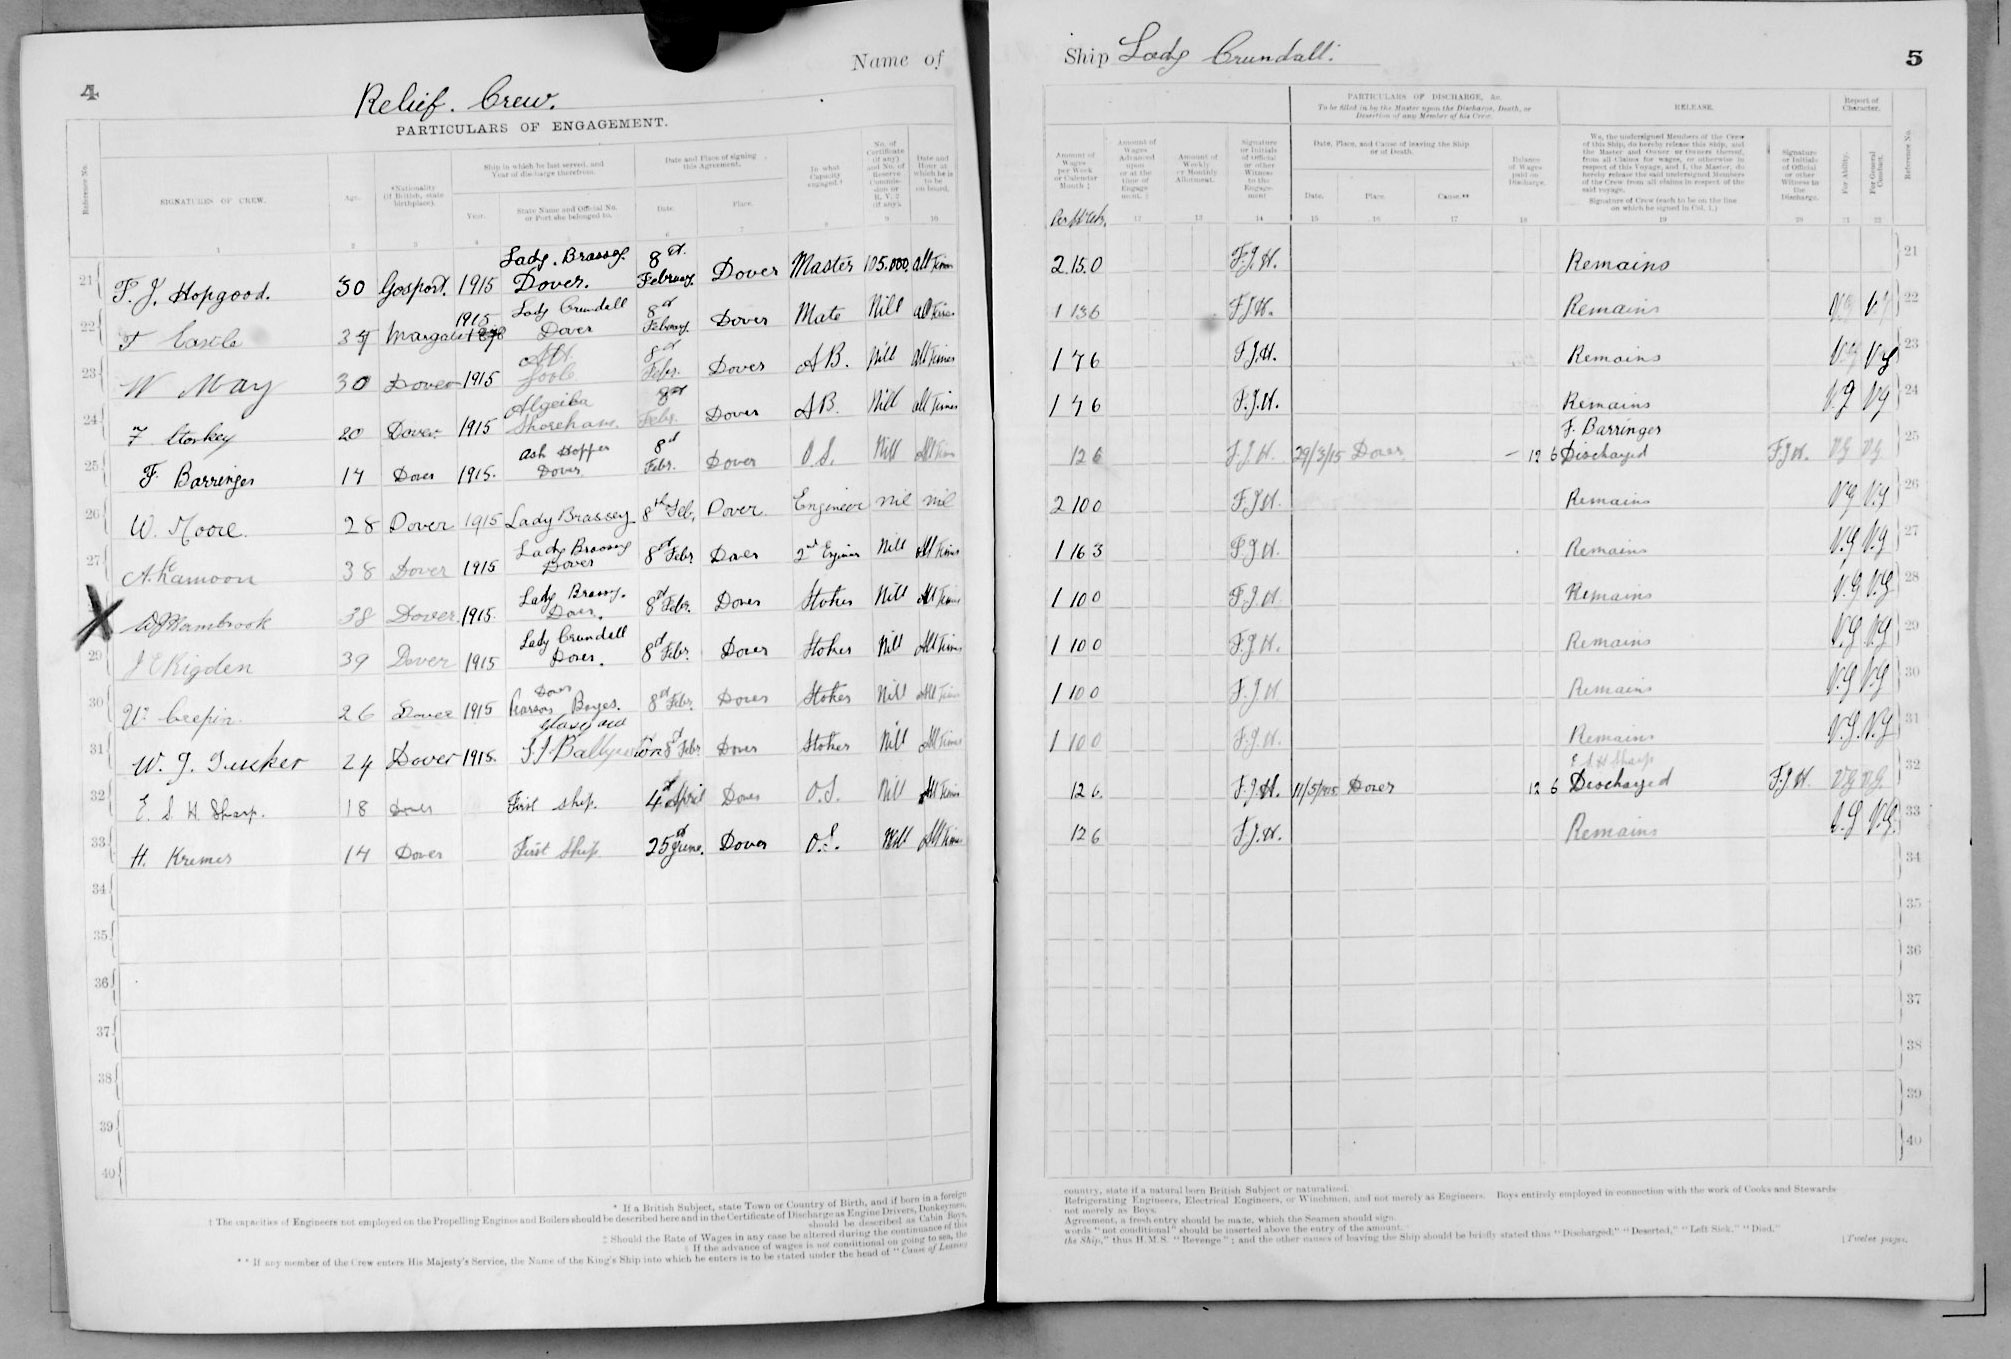 4
Name of
Relief. Crew.
PARTICULARS OF ENGAGEMENT.
Reference No.
SIGNATURES OF CREW.
Age.
*Nationality
(if British, state
birthplace).
Ship in which he last served, and
Year of discharge therefrom.
Year.
State Name and Official No.
or Port she belonged to.
Date and Place of signing
this Agreement.
Date.
Place.
In what
Capacity
engaged.†
No. of
Certificate
(if any)
and No. of
Reserve
Commis-
sion or
R.V.2
(if any).
Date and
Hour at
which he is
to be
on board.
1 2 3 4 5 6 7 8 9 10
21 F. J. Hopgood. 30 Gosport. 1915 Lady. Brassey Dover. 8th February. Dover Master 105.000 All Times
22 F Castle 34 Margate 1915 Lady Crundall Dover 8th February. Dover Mate Nill All Times
23 W May 30 Dover 1915 Goole 8th Febr. Dover A.B. Nill All Times
24 F Storkey 20 Dover 1915 Algeiba Shoreham 8th Febr. Dover A.B. Nill All Times
25 F. Barringer 17 Dover 1915. Ash Hopper Dover 8th Febr. Dover O.S. Nill All Times
26 W. Moore. 28 Dover 1915 Lady Brassey 8th Feb. Dover. Engineer nil nil
27 38 Dover 1915 Lady Brassey Dover 8th Febr Dover 2nd Engineer Nill All Times
X Hornbrook 38 Dover. 1915. Lady Brassey. Dover. 8th Febr. Dover Stoker Nill All Times
29 J E Rigden 39 Dover 1915 Lady Crundall Dover. 8th Febr. Dover Stoker Nill All Times
30 W. Crepin. 26 Dover 1915 Dover Pearson Boyes. 8th Febr. Dover Stoker Nill All Times
31 W. J. Tucker 24 Dover 1915. Glasgow 8th Febr Dover Stoker Nill All Times
32 E. S. H. Sharp. 18 Dover First ship. 4th April Dover O.S. Nill All Times
33 H. Kremer 17 Dover First Ship 25th June. Dover O.S. Nill All Times
34
35
36
37
38
39
40
* If a British Subject, state Town or Country of Birth, and if born in a foreign
† The capacities of Engineers not employed on the Propelling Engines and Boilers should be described here and in the Certificate of Discharge as Engine Drivers, Donkeymen,
should be described as Cabin Boys,
‡ Should the Rate of Wages in any case be altered during the continuance of this
§ If the advance of wages is not conditional on going to sea, the
** If any member of the Crew enters His Majesty's Service, the Name of the King's Ship into which he enters is to be stated under the head of "Cause of Leaving
Ship Lady Crundall.
5
PARTICULARS OF DISCHARGE, &c.
To be filled in by the Master upon the Discharge, Death, or
Desertion of any Member of his Crew.
RELEASE.
Report of
Character.
Amount of
Wages
per Week
or Calendar
Month ‡
Amount of
Wages
Advanced
upon
or at the
time of
Engage-
ment. §
Amount of
Weekly
or Monthly
Allotment.
Signature
or Initials
of Official
or other
Witness
to the
Engage-
ment
Date, Place, and Cause of leaving the Ship
or of Death.
Date.
Place.
Cause.**
Balance
of Wages
paid on
Discharge.
We, the undersigned Members of the Crew
of this Ship, do hereby release this Ship, and
the Master and Owner or Owners thereof,
from all Claims for wages, or otherwise in
respect of this Voyage, and I, the Master, do
hereby release the said undersigned Members
of the Crew from all claims in respect of the
said voyage.
Signature of Crew (each to be on the line
on which he signed in Col. 1.)
Signature
or Initials
of Official
or other
Witness to
the
Discharge.
For Ability.
For General
Conduct.
Reference No.
Per Week.
12 13 14 15 16 17 18 19 20 21 22
2.15.0 F.J.H. Remains 21
1 13 6 F.J.H. Remains V.g V.g 22
1 7 6 F.J.H. Remains V.g V.g 23
1 7 6 F.J.H. Remains V.g V.g 24
F. Barringer
12 6 F.J.H. 29/3/15 Dover - 12 6 Discharged F.J.H. V.g V.g 25
2 10 0 F.J.H. Remains V.g V.g 26
1 16 3 F.J.H. Remains V.g V.g 27
1 10 0 F.J.H. Remains V.g V.g 28
1 10 0 F.J.H. Remains V.g V.g 29
1 10 0 F.J.H. Remains V.g V.g 30
1 10 0 F.J.H. Remains V.g. V.g 31
E S H Sharp
12 6. F.J.H. 11/5/1915 Dover 12 6 Discharged F.J.H. V.g V.g. 32
12 6 F.J.H. Remains V.g V.g. 33
34
35
36
37
38
39
40
country, state if a natural born British Subject or naturalized.
Refrigerating Engineers, Electrical Engineers, or Winchmen, and not merely as Engineers. Boys entirely employed in connection with the work of Cooks and Stewards
not merely as Boys.
Agreement, a fresh entry should be made, which the Seamen should sign.
words "not conditional" should be inserted above the entry of the amount.
the Ship," thus H.M.S. "Revenge"; and the other causes of leaving the Ship should be briefly stated thus "Discharged," "Deserted," "Left Sick," "Died."
[Twelve pages.